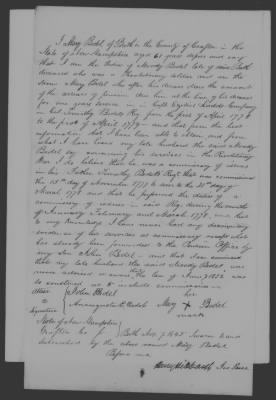 I Mary Bedel of Bath in the County of Grafton in the
State of New Hampshire aged 61 years depose and say
that I am the Widow of Moody Bedel late of said Bath
deceased who was a Revolutionary soldier and on the
same Mary Bedel who after his decease drew the amount
of the arrears of pension due him at the time of his decease
for one years service in Capt Ezekiel Ladds Company
in Col. Timothy Bedels Reg from the first of April 1778
to the first of April 1779 and that from the best
information that I have been able to obtain and from
what I have heard my late husband the said Moody
Bedel say concerning his services in the Revolutionary
War I do believe that he was a commissary of issues
in his Father Timothy Bedels Regt that was commissioned
the 15th day of November 1777 to serve to the 31st day of
March 1778 and that he performed the duties of
commissary of issues in said Reg during the months
of January February and March 1778 and that
to my knowledge I have never had any documentary
evidence of his services as commissary except what
has already been forwarded to the Pension Office by
my son John Bedel and that I am convinced
that my late husband the said Moody Bedel was
never advised or aware that the law of June 7 1832 was
to entitled as to include commissaries
Attest John Bedel
to
signature
her
Mary + Bedel
mark
State of New Hampshire
Grafton ss Bath Nov. 7 1845 Sworn and
Subscribed by the above named Mary Bedel
Before me
Harry Hibbard Jus Peace